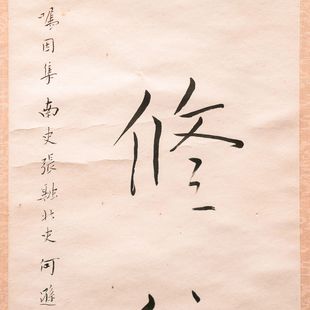 修
因集南史張融北史何遜